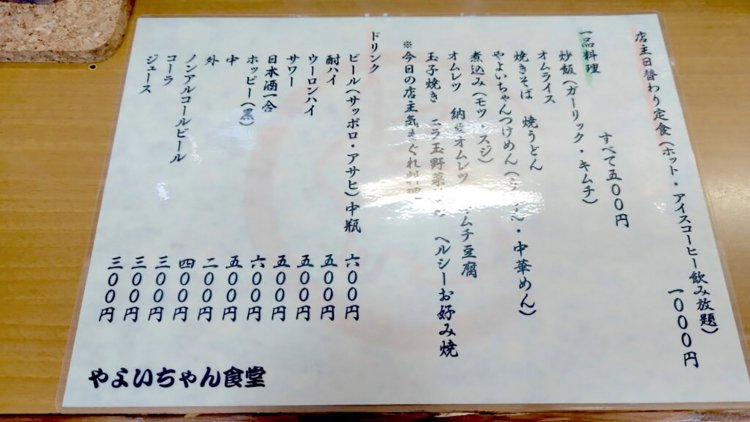 店主日替わり定食(ホット・アイスコーヒー飲み放題)
一〇〇〇円
一品料理
すべて五〇〇円
炒飯(ガーリック・キムチ)
オムライス
焼きそば 焼うどん
やよいちゃんつけめん( ・中華めん)
煮込み(モツ・スジ)
オムレツ 納豆オムレツ キムチ豆腐
玉子焼き ニラ玉野菜 ヘルシーお好み焼
※今日の店主気まぐれ料理
ドリンク
ビール(サッポロ・アサヒ)中瓶 六〇〇円
酎ハイ 五〇〇円
ウーロンハイ 五〇〇円
サワー 五〇〇円
日本酒一合 六〇〇円
ホッピー(黒) 五〇〇円
中 二〇〇円
外 四〇〇円
ノンアルコールビール 三〇〇円
コーラ 三〇〇円
ジュース 三〇〇円
やよいちゃん食堂